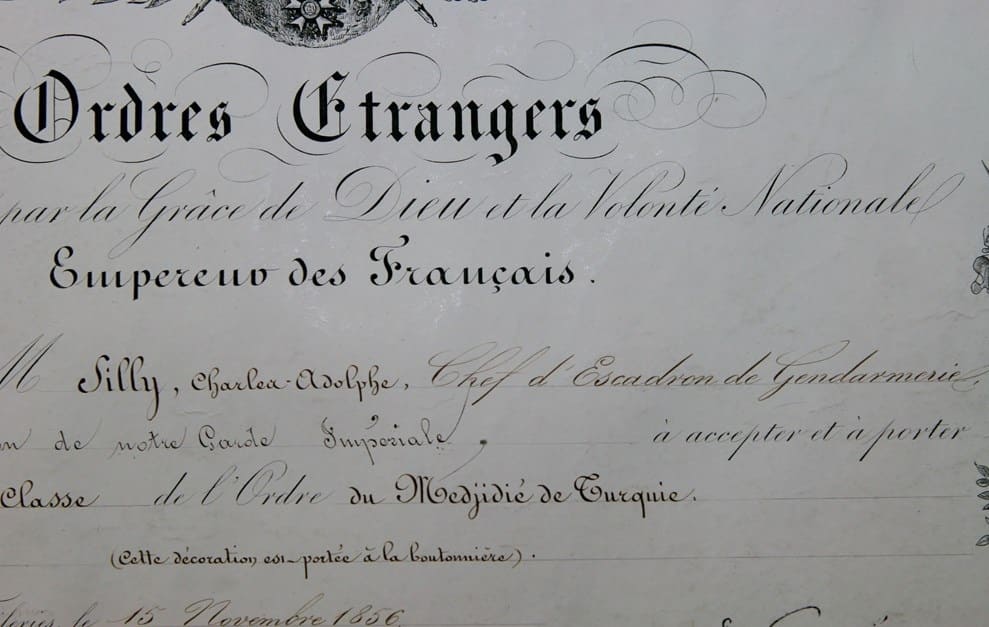 Ordres Etrangers
par la Grâce de Dieu et la Volonté Nationale
Empereur des Français.
M Silly, Charles-Adolphe, Chef d'Escadron de Gendarmerie,
de notre Garde Impériale, à accepter et à porter
Classe de l'Ordre du Medjidié de Turquie.
(Cette décoration est portée à la boutonnière).
le 15 Novembre 1856